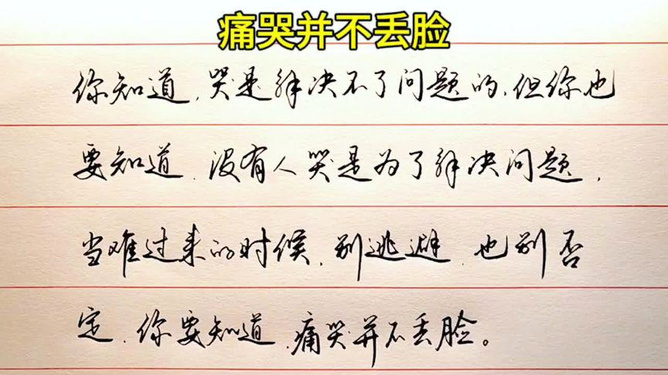 痛哭并不丢脸
你知道,哭是解决不了问题的,但你也
要知道,没有人哭是为了解决问题,
当难过来的时候,别逃避,也别否
定,你要知道,痛哭并不丢脸。